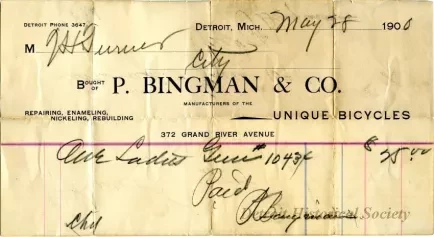 DETROIT PHONE 3647
DETROIT, MICH. May 28 1900
M J H Turner
City
BOUGHT OF P. BINGMAN & CO.
MANUFACTURERS OF THE
REPAIRING, ENAMELING, NICKELING, REBUILDING
UNIQUE BICYCLES
372 GRAND RIVER AVENUE
One Ladies # 10436 $ 25.00
Paid
P Bingman
Historical Society